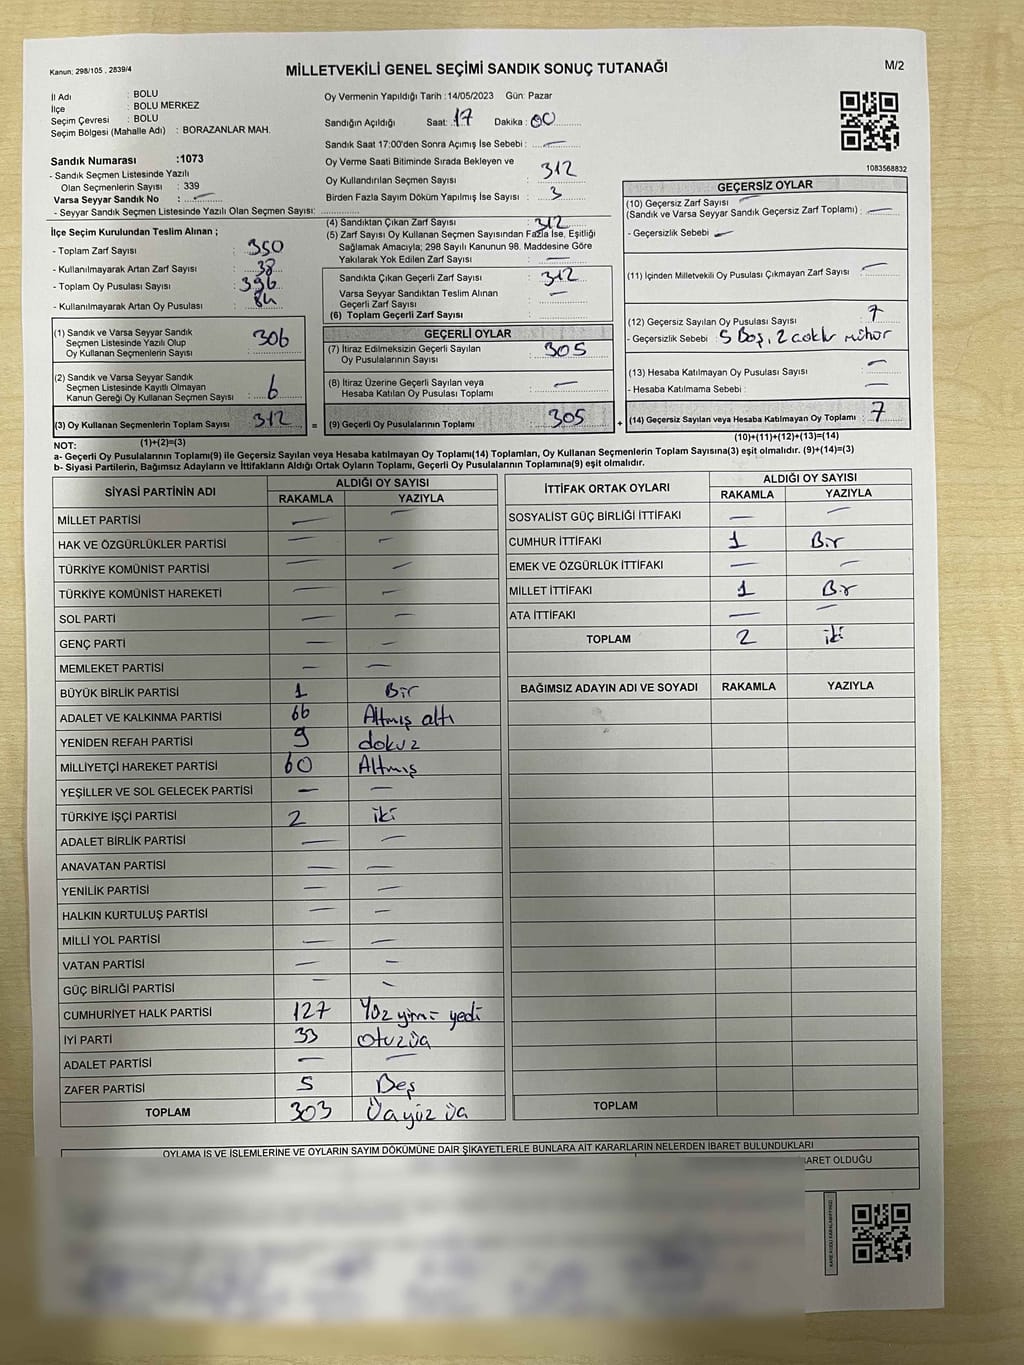 Kanun; 298/105 , 2839/4
MİLLETVEKİLİ GENEL SEÇİMİ SANDIK SONUÇ TUTANAĞI
M/2
İl Adı : BOLU
İlçe : BOLU MERKEZ
Seçim Çevresi : BOLU
Seçim Bölgesi (Mahalle Adı) : BORAZANLAR MAH.
Sandık Numarası :1073
- Sandık Seçmen Listesinde Yazılı
Olan Seçmenlerin Sayısı : 339
Varsa Seyyar Sandık No : —
- Seyyar Sandık Seçmen Listesinde Yazılı Olan Seçmen Sayısı:
Oy Vermenin Yapıldığı Tarih :14/05/2023 Gün: Pazar
Sandığın Açıldığı Saat: 17 Dakika : 00
Sandık Saat 17:00'den Sonra Açımış İse Sebebi : —
Oy Verme Saati Bitiminde Sırada Bekleyen ve
Oy Kullandırılan Seçmen Sayısı : 312
Birden Fazla Sayım Döküm Yapılmış İse Sayısı : 3
1083568832
İlçe Seçim Kurulundan Teslim Alınan ;
- Toplam Zarf Sayısı : 350
- Kullanılmayarak Artan Zarf Sayısı : 38
- Toplam Oy Pusulası Sayısı : 396
- Kullanılmayarak Artan Oy Pusulası : 84
(1) Sandık ve Varsa Seyyar Sandık
Seçmen Listesinde Yazılı Olup
Oy Kullanan Seçmenlerin Sayısı : 306
(2) Sandık ve Varsa Seyyar Sandık
Seçmen Listesinde Kayıtlı Olmayan
Kanun Gereği Oy Kullanan Seçmen Sayısı : 6
(3) Oy Kullanan Seçmenlerin Toplam Sayısı : 312
(1)+(2)=(3)
(4) Sandıktan Çıkan Zarf Sayısı : 312
(5) Zarf Sayısı Oy Kullanan Seçmen Sayısından Fazla İse, Eşitliği
Sağlamak Amacıyla; 298 Sayılı Kanunun 98. Maddesine Göre
Yakılarak Yok Edilen Zarf Sayısı : —
Sandıkta Çıkan Geçerli Zarf Sayısı : 312
Varsa Seyyar Sandıktan Teslim Alınan
Geçerli Zarf Sayısı : —
(6) Toplam Geçerli Zarf Sayısı :
GEÇERLİ OYLAR
(7) İtiraz Edilmeksizin Geçerli Sayılan
Oy Pusulalarının Sayısı : 305
(8) İtiraz Üzerine Geçerli Sayılan veya
Hesaba Katılan Oy Pusulası Toplamı : —
= (9) Geçerli Oy Pusulalarının Toplamı : 305 +
GEÇERSİZ OYLAR
(10) Geçersiz Zarf Sayısı
(Sandık ve Varsa Seyyar Sandık Geçersiz Zarf Toplamı) : —
- Geçersizlik Sebebi : —
(11) İçinden Milletvekili Oy Pusulası Çıkmayan Zarf Sayısı : —
(12) Geçersiz Sayılan Oy Pusulası Sayısı : 7
- Geçersizlik Sebebi : 5 Boş, 2 çoklu mühür
(13) Hesaba Katılmayan Oy Pusulası Sayısı : —
- Hesaba Katılmama Sebebi : —
(14) Geçersiz Sayılan veya Hesaba Katılmayan Oy Toplamı : 7
(10)+(11)+(12)+(13)=(14)
NOT:
a- Geçerli Oy Pusulalarının Toplamı(9) ile Geçersiz Sayılan veya Hesaba katılmayan Oy Toplamı(14) Toplamları, Oy Kullanan Seçmenlerin Toplam Sayısına(3) eşit olmalıdır. (9)+(14)=(3)
b- Siyasi Partilerin, Bağımsız Adayların ve İttifakların Aldığı Ortak Oyların Toplamı, Geçerli Oy Pusulalarının Toplamına(9) eşit olmalıdır.
SİYASİ PARTİNİN ADI ALDIĞI OY SAYISI
RAKAMLA YAZIYLA
MİLLET PARTİSİ — —
HAK VE ÖZGÜRLÜKLER PARTİSİ — —
TÜRKİYE KOMÜNİST PARTİSİ — —
TÜRKİYE KOMÜNİST HAREKETİ — —
SOL PARTİ — —
GENÇ PARTİ — —
MEMLEKET PARTİSİ — —
BÜYÜK BİRLİK PARTİSİ 1 Bir
ADALET VE KALKINMA PARTİSİ 66 Altmış altı
YENİDEN REFAH PARTİSİ 9 dokuz
MİLLİYETÇİ HAREKET PARTİSİ 60 Altmış
YEŞİLLER VE SOL GELECEK PARTİSİ — —
TÜRKİYE İŞÇİ PARTİSİ 2 iki
ADALET BİRLİK PARTİSİ — —
ANAVATAN PARTİSİ — —
YENİLİK PARTİSİ — —
HALKIN KURTULUŞ PARTİSİ — —
MİLLİ YOL PARTİSİ — —
VATAN PARTİSİ — —
GÜÇ BİRLİĞİ PARTİSİ — —
CUMHURİYET HALK PARTİSİ 127 Yüz yirmi yedi
İYİ PARTİ 33 otuzüç
ADALET PARTİSİ — —
ZAFER PARTİSİ 5 Beş
TOPLAM 303 Üçyüz üç
İTTİFAK ORTAK OYLARI ALDIĞI OY SAYISI
RAKAMLA YAZIYLA
SOSYALİST GÜÇ BİRLİĞİ İTTİFAKI — —
CUMHUR İTTİFAKI 1 Bir
EMEK VE ÖZGÜRLÜK İTTİFAKI — —
MİLLET İTTİFAKI 1 Bir
ATA İTTİFAKI — —
TOPLAM 2 iki
BAĞIMSIZ ADAYIN ADI VE SOYADI RAKAMLA YAZIYLA
TOPLAM
OYLAMA İŞ VE İŞLEMLERİNE VE OYLARIN SAYIM DÖKÜMÜNE DAİR ŞİKAYETLERLE BUNLARA AİT KARARLARIN NELERDEN İBARET BULUNDUKLARI
OLDUĞU